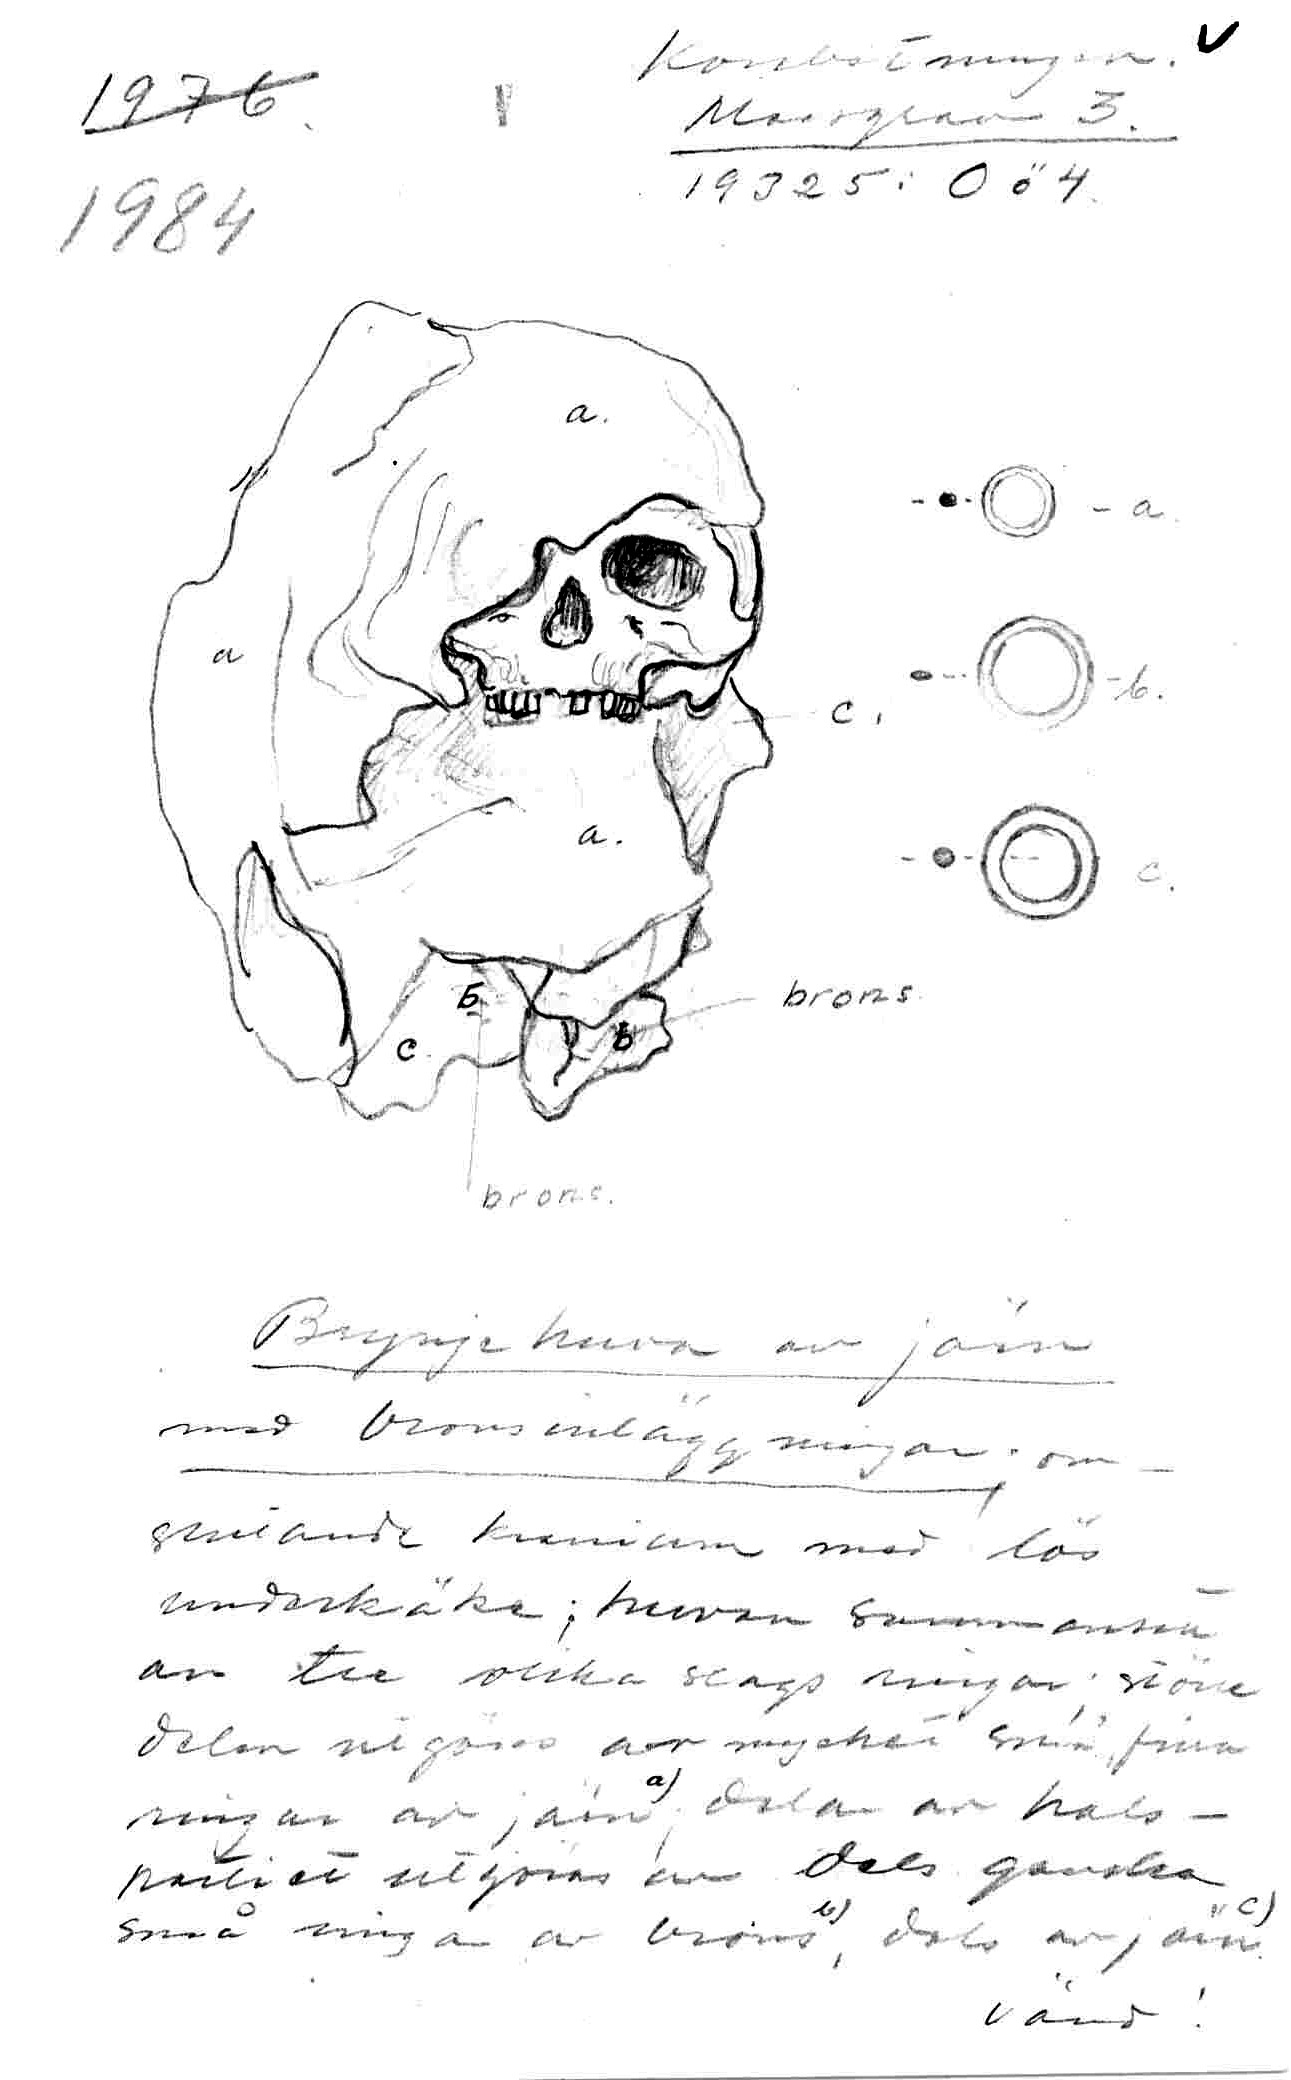 1976.
1984
Korsbetningen. V
Massgrav 3.
19325: O ö 4.
a.
a
- a.
- b.
c.
a.
c.
b
c.
b
brons
brons.
Brynjehuva av järn
med bronsinläggningar; om-
slutande kranium med lös
underkäke; huvan sammansatt
av tre olika slags ringar; större
delen utgöres av mycket små, fina
ringar av järn a); delar av hals-
partiet utgöras av dels ganska
små ringar av brons b), dels av järn c)
vänd!